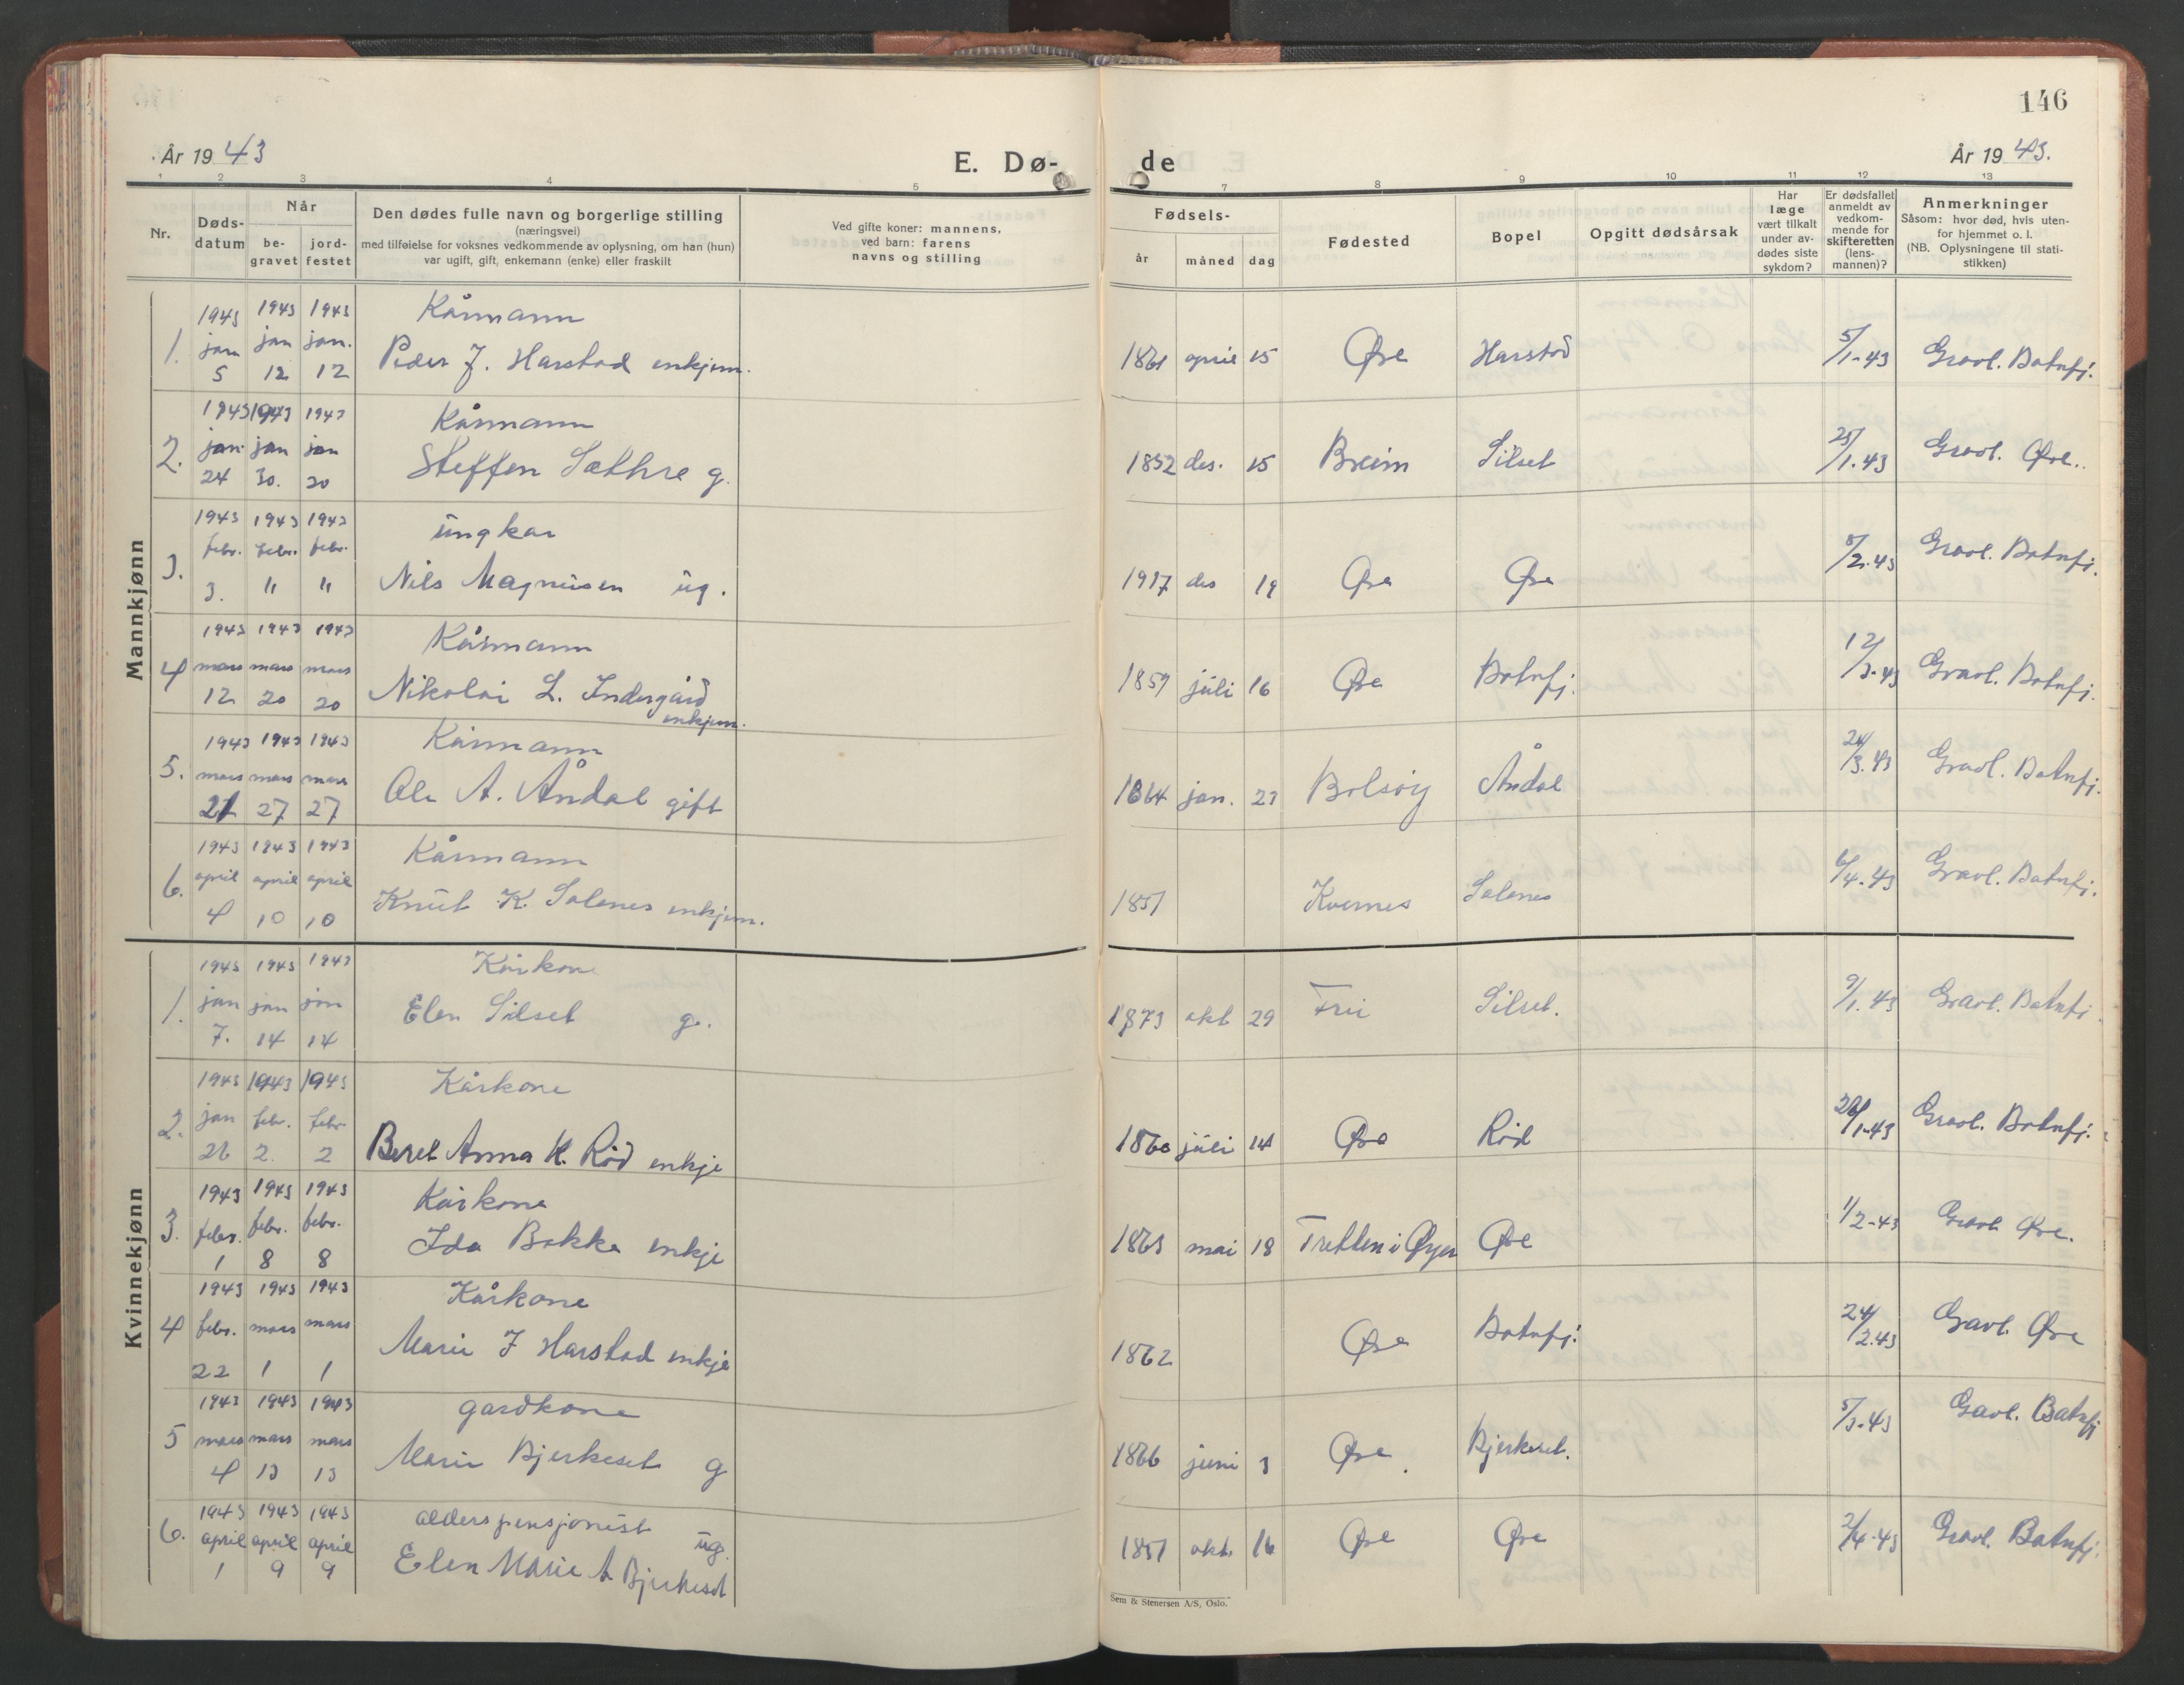 146
År 1943
E. Dø-
de
År 1943.
1 2 3 4 5 7 8 9 10 11 12 13
Nr.
Døds-
datum
Når
be-
gravet
jord-
festet
Den dødes fulle navn og borgerlige stilling
(næringsvei)
med tilføielse for voksnes vedkommende av oplysning, om han (hun)
var ugift, gift, enkemann (enke) eller fraskilt
Ved gifte koner: mannens,
ved barn: farens
navns og stilling
Fødsels-
år måned dag
Fødested
Bopel
Opgitt dødsårsak
Har
læge
vært tilkalt
under av-
dødes siste
sykdom?
Er dødsfallet
anmeldt av
vedkom-
mende for
skifteretten
(lens-
mannen)?
Anmerkninger
Såsom: hvor død, hvis uten-
for hjemmet o. l.
(NB. Oplysningene til stati-
stikken)
Mannkjønn
1943 1943 1943 Kårmann
1. jan jan jan. Peder J. Harstad enkjem. 1861 april 15 Øre Harstad 5/1-43 Gravl. Batnfj.
5 12 12
1943 1943 1943 Kårmann
2. jan. jan jan Steffen Sæthre g. 1852 des. 15 Breim Silset 25/1.43 Gravl. Øre.
24 30. 30
1943 1943 1943 Ungkar
3. febr. febr. febr. Nils Magnusen ug. 1917 des 19 Øre Øre 5/2.43 Gravl. Batnfj.
3. " "
1943 1943 1943 Kårmann
4 mars mars mars Nikolai L. Indergård 1859 juli 16 Øre Batnfj. 12/3-43 Gravl. Batnfj.
12 20 20 enkjem.
1943 1943 1943 Kårmann
5. mars mars mars Ole A. Åndal gift 1864 jan. 23 Bolsøy Åndal 24/3.43 Gravl. Batnfj.
21 27 27
1943 1943 1943 Kårmann
6. april april april Knut K. Solenes enkjem. 1851 Kvernes Solenes 6/4-43 Gravl. Batnfj.
4 10 10
Kvinnekjønn
1943 1943 1943 Kårkone
1. jan jan jan Elen Silset g. 1873 okt 29 Frei Silset. 9/1.43 Gravl. Batnfj
7. 14 14
1943 1943 1943 Kårkone
2. jan febr. febr. Beret Anna K. Rød enkje 1860 juli 14 Øre Rød 28/1-43 Gravl. Batnfj.
26 2. 2
1943 1943 1943 Kårkone
3. febr. febr. febr. Ida Bakke enkje 1863 mai 18 Tretten i Øyer Øre 1/2-43 Gravl. Øre.
1 8 8
1943 1943 1943 Kårkone
4 febr. mars mars Marie J Harstad enkje 1862 Øre Batnfj. 24/2.43 Gravl. Øre
22 1 1
1943 1943 1943 gardkone
5 mars mars mars Marie Bjerkeset g 1866 juni 3 Øre. Bjerkeset. 5/3-43 Gravl. Batnfj
4 13 13
1943 1943 1943 alderspensjonist ug.
6. april april april Elen Marie A Bjerkeset 1851 okt. 16 Øre Øre 2/4-43 Gravl. Batnfj.
1 9 9
Sem & Stenersen A/S, Oslo.